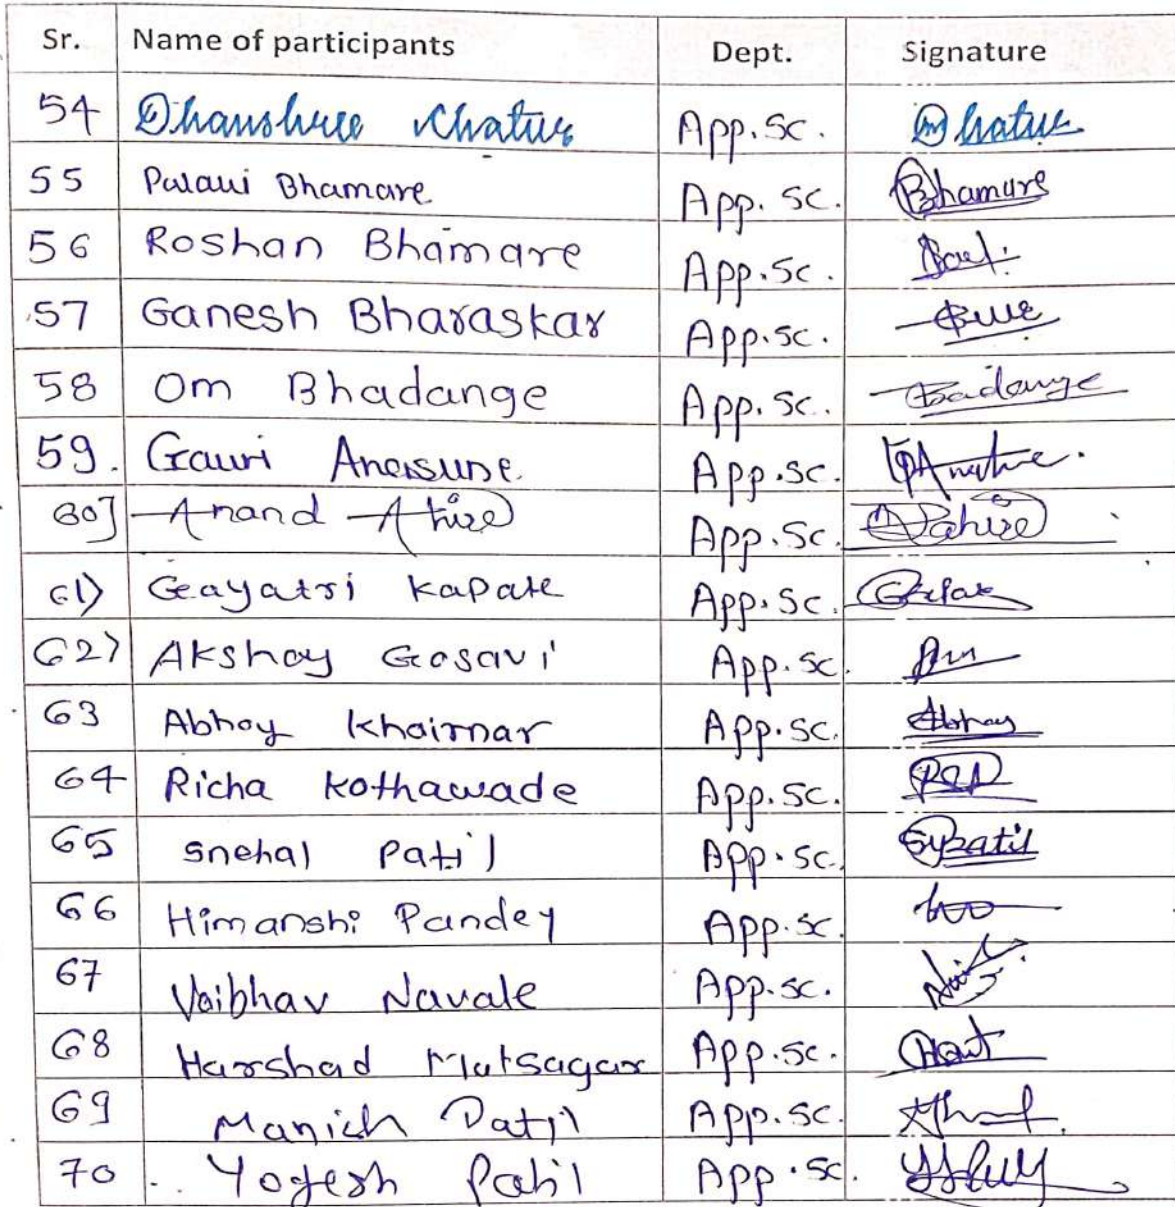 Sr. Name of participants Dept. Signature
54 Dhanshree Chatur App.Sc. Chatur
55 Palavi Bhamare App. Sc. Bhamare
56 Roshan Bhamare App.Sc.
57 Ganesh Bharaskar App.Sc.
58 Om Bhadange App.Sc. Badange
59. Gauri App.Sc.
60] Anand Ahire App.Sc. Ahire
61) Gayatri Kapate App.Sc.
62) Akshay Gosavi App.Sc.
63 Abhay Khairnar App.Sc. Abhay
64 Richa Kothawade App.Sc.
65 Snehal Patil App.Sc. Sypatil
66 Himanshi Pandey App.Sc.
67 Vaibhav Navale App.Sc.
68 Harshad Mutsagar App.Sc.
69 Manich Patil App.Sc.
70 Yogesh Patil App.Sc.